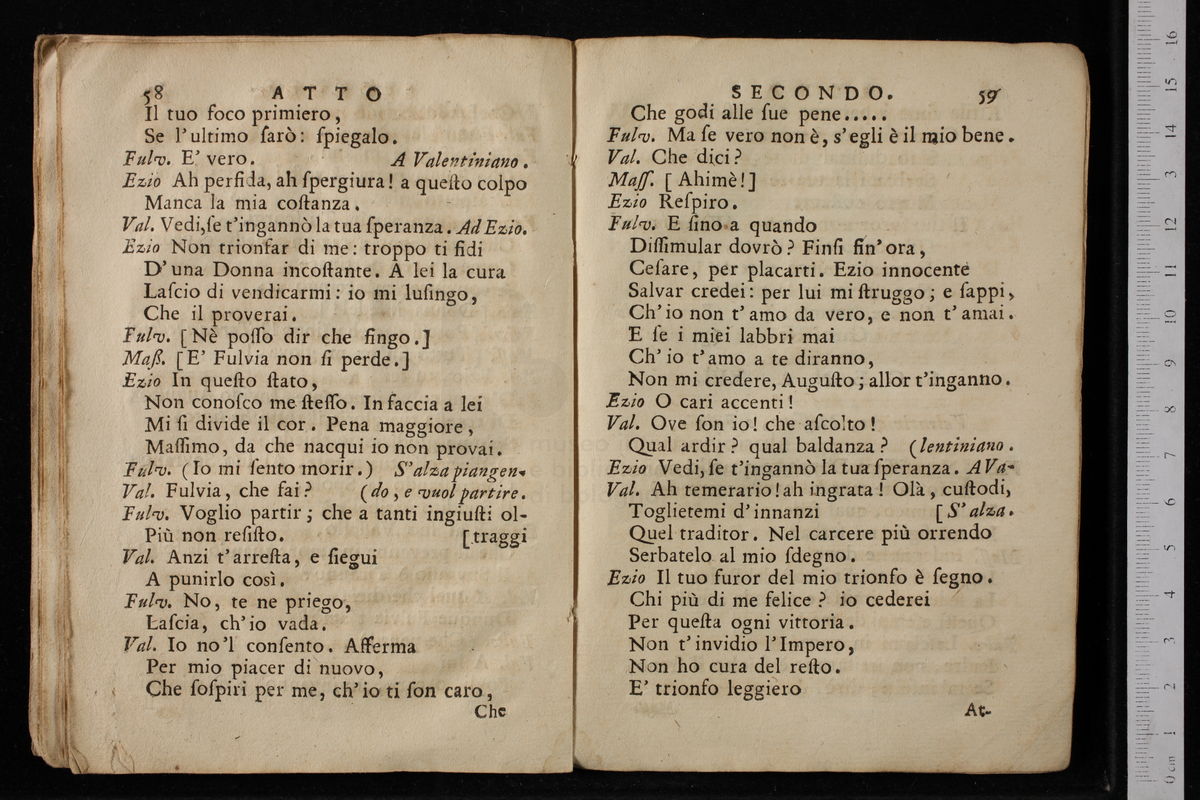 58 ATTO
Il tuo foco primiero,
Se l'ultimo ſarò: ſpiegalo.
Fulv. E' vero. A Valentiniano.
Ezio Ah perfida, ah ſpergiura! a queſto colpo
Manca la mia coſtanza.
Val. Vedi, ſe t'ingannò la tua ſperanza. Ad Ezio.
Ezio Non trionfar di me: troppo ti fidi
D'una Donna incoſtante. A lei la cura
Laſcio di vendicarmi: io mi luſingo,
Che il proverai.
Fulv. [Nè poſſo dir che fingo.]
Maß. [E' Fulvia non ſi perde.]
Ezio In queſto ſtato,
Non conoſco me ſteſſo. In faccia a lei
Mi ſi divide il cor. Pena maggiore,
Maſſimo, da che nacqui io non provai.
Fulv. (Io mi ſento morir.) S'alza piangen-
Val. Fulvia, che fai? (do, e vuol partire.
Fulv. Voglio partir; che a tanti ingiuſti ol-
Più non reſiſto. [traggi
Val. Anzi t'arreſta, e ſiegui
A punirlo così.
Fulv. No, te ne priego,
Laſcia, ch'io vada.
Val. Io no'l conſento. Afferma
Per mio piacer di nuovo,
Che ſoſpiri per me, ch'io ti ſon caro,
Che
SECONDO. 59
Che godi alle ſue pene.....
Fulv. Ma ſe vero non è, s'egli è il mio bene.
Val. Che dici?
Maſſ. [Ahimè!]
Ezio Reſpiro.
Fulv. E ſino a quando
Diſſimular dovrò? Finſi fin'ora,
Ceſare, per placarti. Ezio innocente
Salvar credei: per lui mi ſtruggo; e ſappi,
Ch'io non t'amo da vero, e non t'amai.
E ſe i miei labbri mai
Ch'io t'amo a te diranno,
Non mi credere, Auguſto; allor t'inganno.
Ezio O cari accenti!
Val. Ove ſon io! che aſcolto!
Qual ardir? qual baldanza? (lentiniano.
Ezio Vedi, ſe t'ingannò la tua ſperanza. A Va-
Val. Ah temerario! ah ingrata! Olà, cuſtodi,
Toglietemi d'innanzi [S'alza.
Quel traditor. Nel carcere più orrendo
Serbatelo al mio ſdegno.
Ezio Il tuo furor del mio trionfo è ſegno.
Chi più di me felice? io cederei
Per queſta ogni vittoria.
Non t'invidio l'Impero,
Non ho cura del reſto.
E' trionfo leggiero
At-
0 cm 1 2 3 4 5 6 7 8 9 10 11 12 3 14 15 16